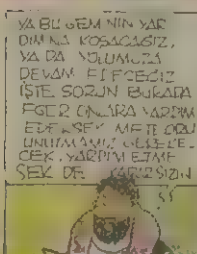 YA BU GEMİNİN YAR
DIMINA KOŞACAĞIZ,
YA DA YOLUMUZA
DEVAM EDECEĞİZ
İŞTE SORUN BURADA
EĞER ONLARA YARDIM
EDERSEK METE ORU
UNUTMAMIZ GEREKE-
CEK. YARDIM ETME
SEK DE